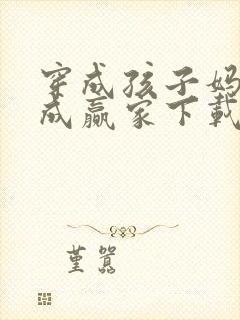 穿成孩子妈
成赢家下载
堇嚣